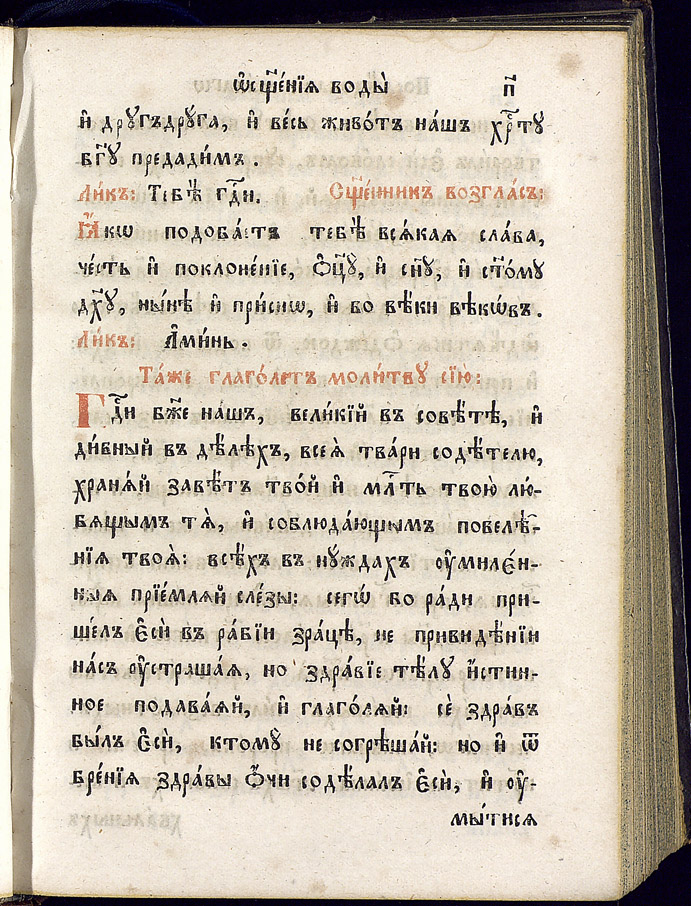 ѡ҆сщ҃е́нїѧ воды̀ п҃
и҆ дрꙋгъдрꙋ́га, и҆ ве́сь живо́тъ на́шъ хрⷭ҇тꙋ
бг҃ꙋ предади́мъ.
Ли́къ: Тебѣ̀ гдⷭ҇и. Сщ҃е́нникъ возгла́съ:
Ꙗ҆́кѡ подоба́етъ тебѣ̀ всѧ́каѧ сла́ва,
че́сть и҆ поклоне́нїе, ѻ҆ц҃ꙋ̀, и҆ сн҃ꙋ, и҆ ст҃о́мꙋ
дх҃ꙋ, ны́нѣ и҆ при́снѡ, и҆ во вѣ́ки вѣкѡ́въ.
Ли́къ: А҆ми́нь.
Та́же глаго́летъ моли́твꙋ сїю̀:
Гдⷭ҇и бж҃е на́шъ, вели́кїй въ совѣ́тѣ, и҆
ди́вный въ дѣ́лѣхъ, всеѧ̀ тва́ри содѣ́телю,
хранѧ́й завѣ́тъ тво́й и҆ млⷭ҇ть твою̀ лю́-
бѧщымъ тѧ̀, и҆ соблюда́ющымъ повелѣ́-
нїѧ твоѧ̀: всѣ́хъ въ нꙋ́ждахъ ᲂу҆миле́н-
ныѧ прїе́млѧй сле́зы: сегѡ̀ бо ра́ди при-
ше́лъ є҆сѝ въ ра́бїи зра́цѣ, не привидѣ́нїи
на́съ ᲂу҆страша́ѧ, но здра́вїе тѣ́лꙋ и҆́стин-
ное подава́ѧй, и҆ глаго́лѧй: сѐ здра́въ
бы́лъ є҆сѝ, ктомꙋ̀ не согрѣша́й: но и҆ ѿ
бре́нїѧ здра́вы ѻ҆́чи содѣ́лалъ є҆сѝ, и҆ ᲂу҆-
мы́тисѧ